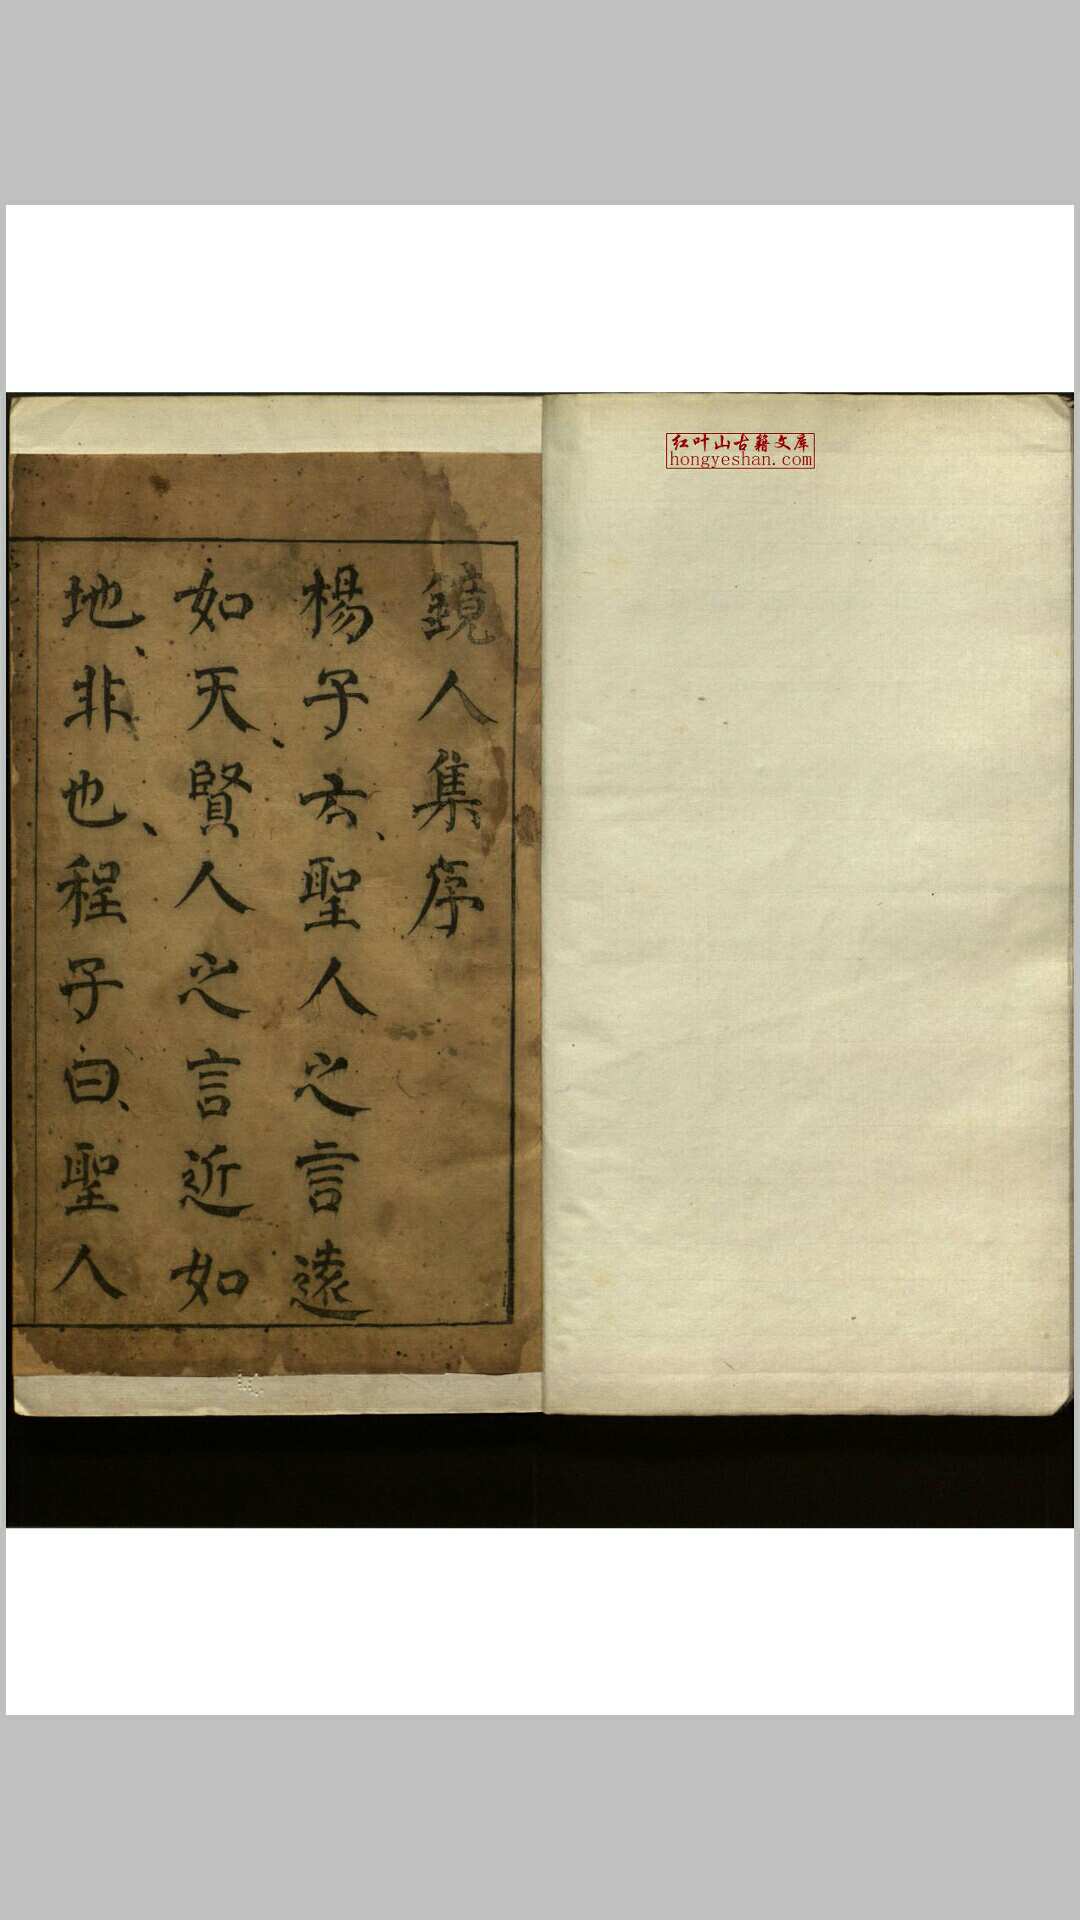 红叶山古籍文库
hongyeshan.com
鏡人集序
楊子云聖人之言遠
如天賢人之言近如
地非也程子曰聖人